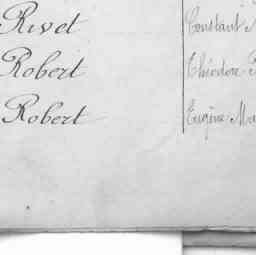 Rivet Constant
Robert Théodore
Robert Eugène